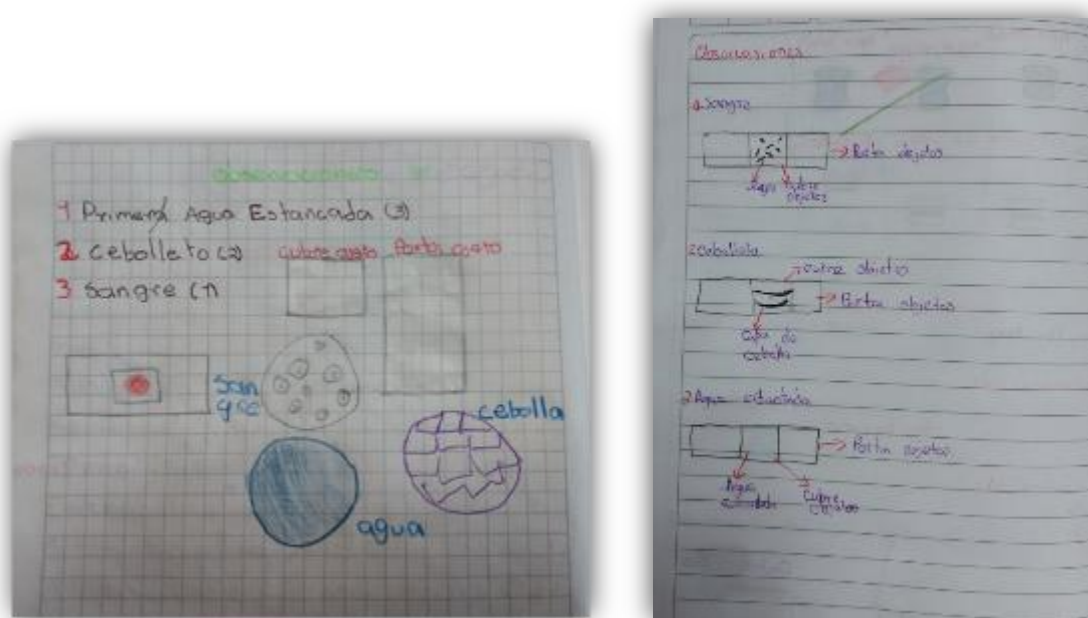 Observaciones
1 Primera Agua Estancada (3)
2 Cebolleta (2)
3 Sangre (1)
Cubre objeto Porta objeto
San
gre
cebolla
agua
Observaciones
1. Sangre
Porta objetos
Cubre
objetos
2. Cebolleta
Cubre objetos
Porta objetos
Capa de
cebolla
Agua estancada
Porta objetos
Agua
Cubre
objetos